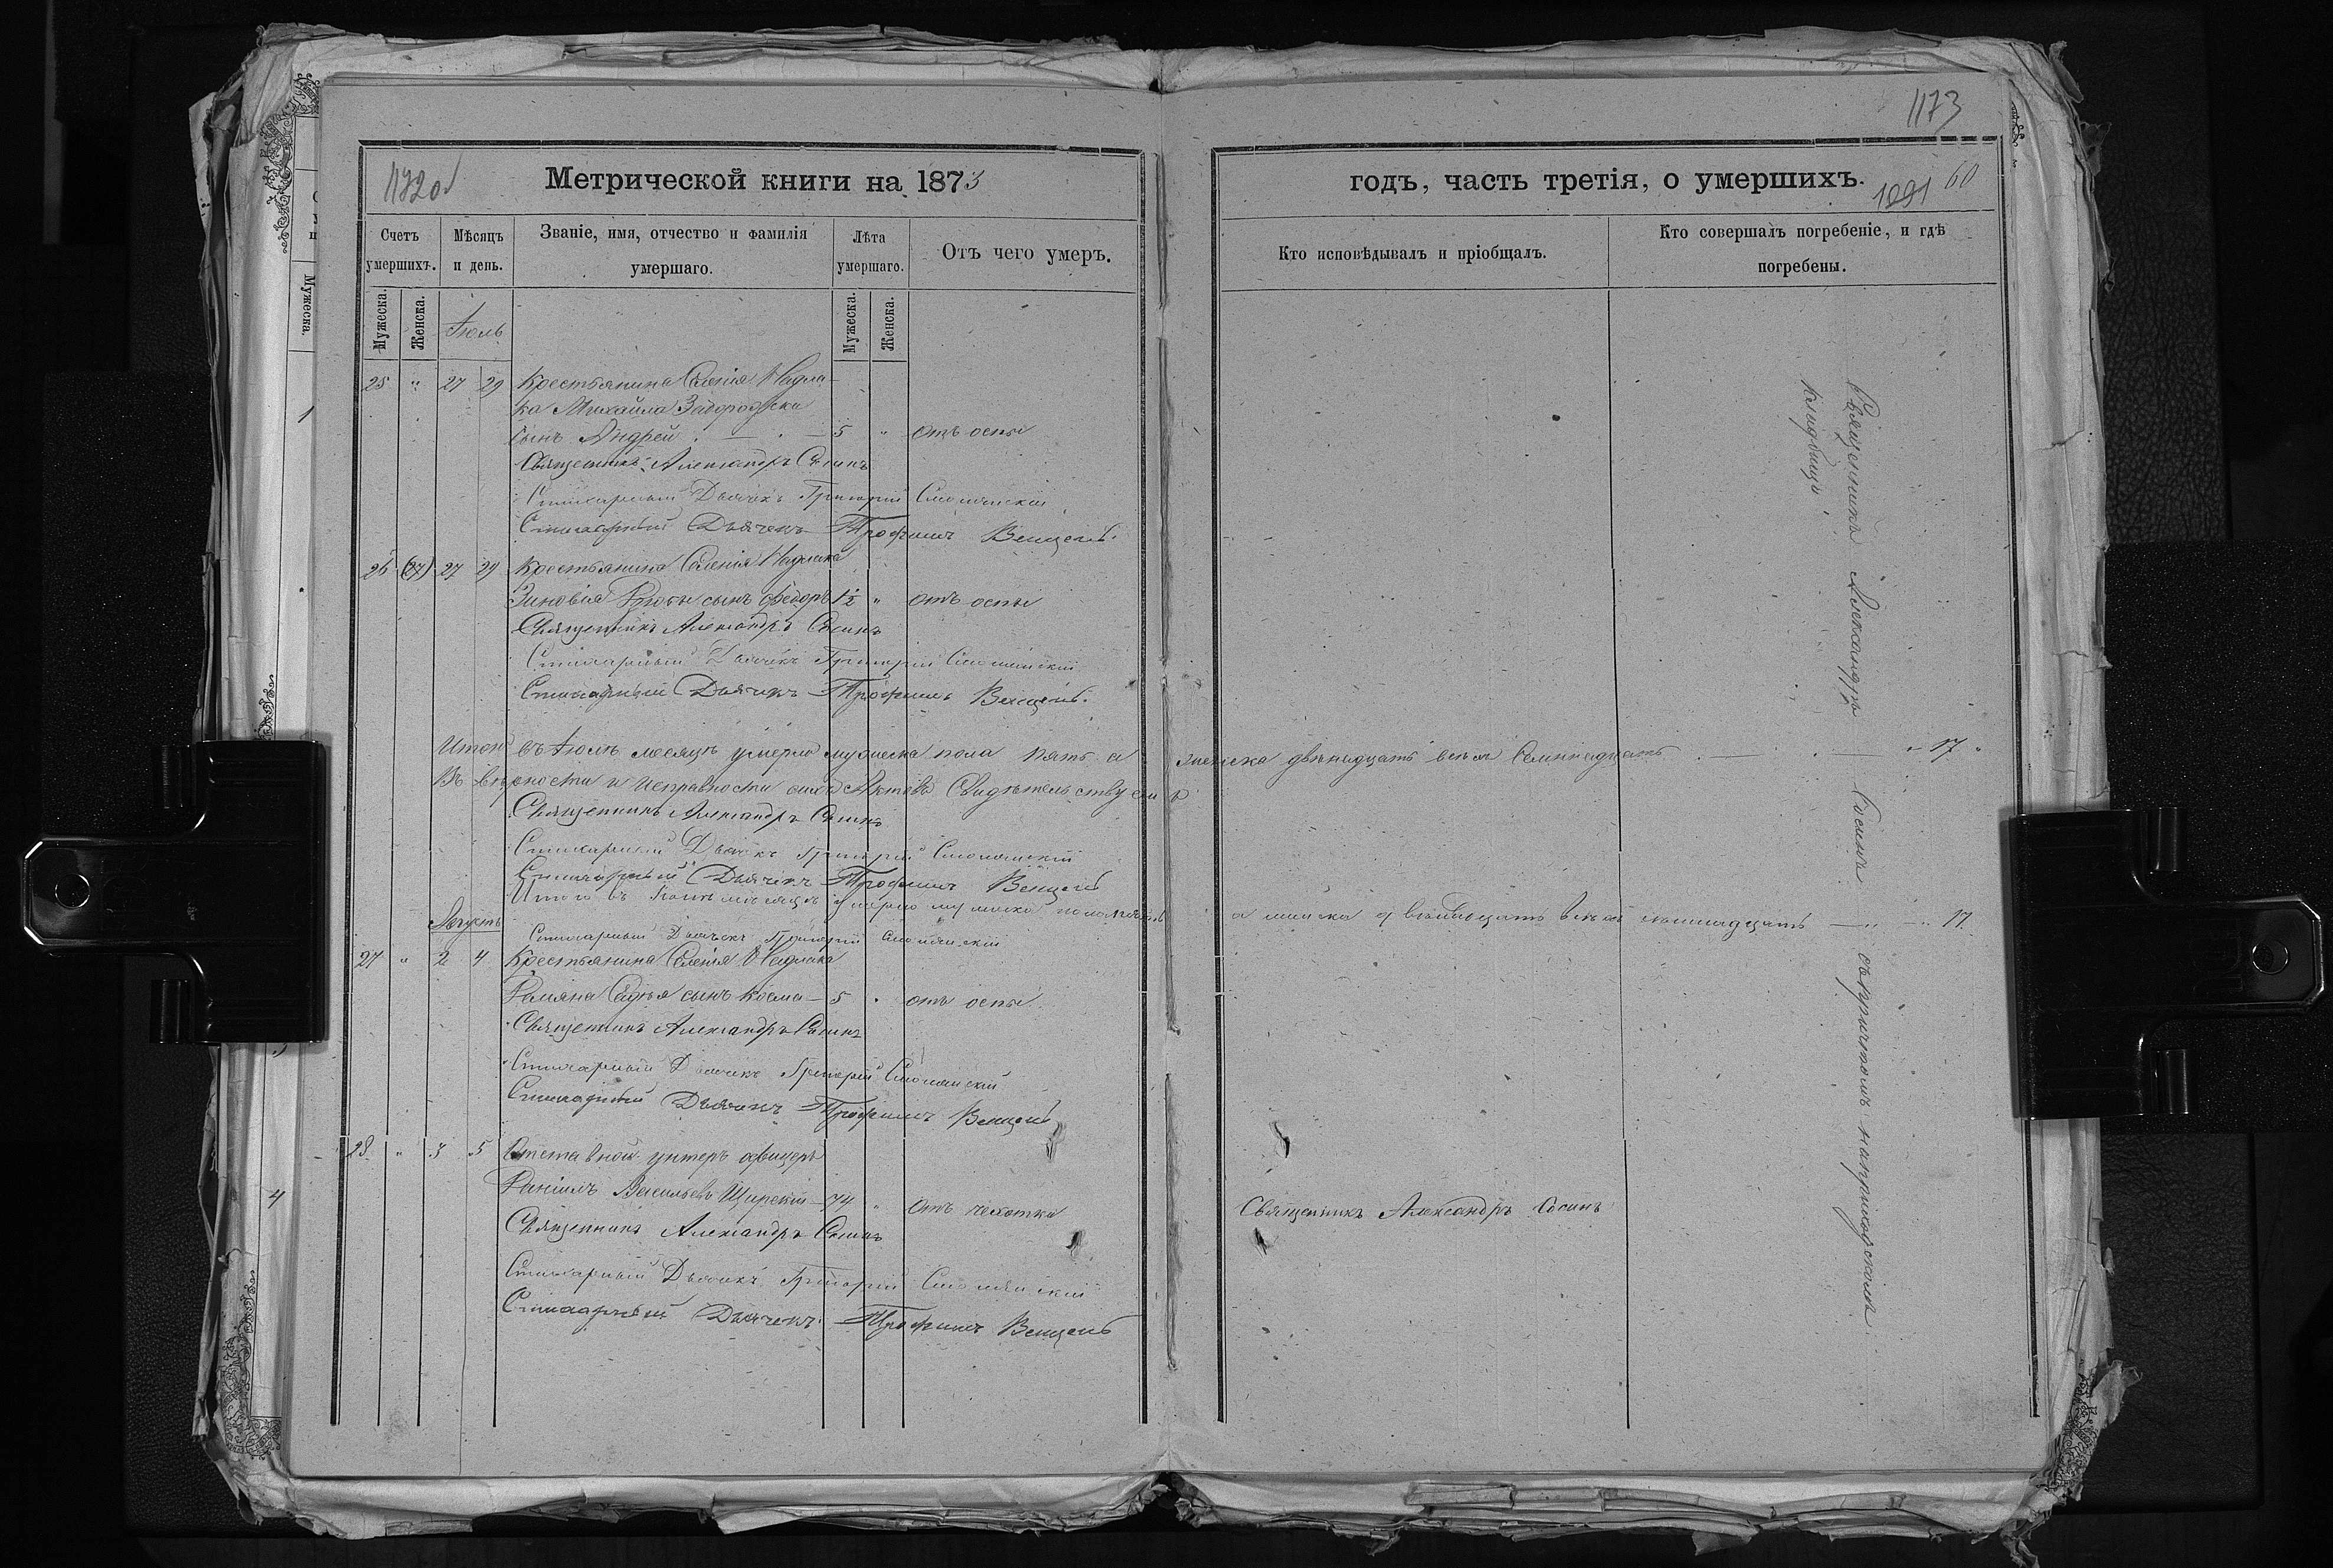 1173
1172об
Метрической книги на 1873
годъ, часть третія, о умершихъ.
1091 60
Счетъ умершихъ.
Мѣсяцъ и день.
Званіе, имя, отчество и фамилія умершаго.
Лѣта умершаго.
Отъ чего умеръ.
Кто исповѣдывалъ и пріобщалъ.
Кто совершалъ погребеніе, и гдѣ погребены.
Мужеска.
Женска.
Мужеска.
Женска.
Мужеска.
Іюль
25 " 27 29 Крестьянина Селенія Надла-
ка Михайла Задорожска
сынъ Андрей 5 " отъ оспы
Священникъ Александръ Сосинъ
Стихарный Дьячекъ Григорій
Стихарный Дьячекъ Трофимъ Венцель
26 (27) 27 29 Крестьянина Селенія Надлака
Зиновія сынъ Федоръ 1½ " отъ оспы
Священникъ Александръ Сосинъ
Стихарный Дьячекъ Григорій
Стихарный Дьячекъ Трофимъ Венцель
Итого въ Іюлѣ месяцѣ умерло мужеска пола пять а женска двенадцать всего Семнадцать " 17 "
Въ верности и исправности сихъ Актовъ Свидѣтельствуемъ
Священникъ Александръ Сосинъ
Стихарный Дьячекъ Григорій
Стихарный Дьячекъ Трофимъ Венцель
Итого въ Іюлѣ мѣсяцѣ умерло мужеска пола пять а женска двенадцать всего семнадцать 17
Августъ
Стихарный Дьячекъ Григорій
27 " 2 4 Крестьянина Селенія Надлака
сынъ Косма 5 " отъ оспы
Священникъ Александръ Сосинъ
Стихарный Дьячекъ Григорій
Стихарный Дьячекъ Трофимъ Венцель
28 " 3 5 Отставной унтеръ офицеръ
Даніилъ Васильевъ Щирскій 74 " отъ чехотки
Священникъ Александръ Сосинъ
Священникъ Александръ Сосинъ
Стихарный Дьячекъ Григорій
Стихарный Дьячекъ Трофимъ Венцель
Священникъ Александръ Сосинъ съ причтомъ на приходскомъ
кладбищѣ
4